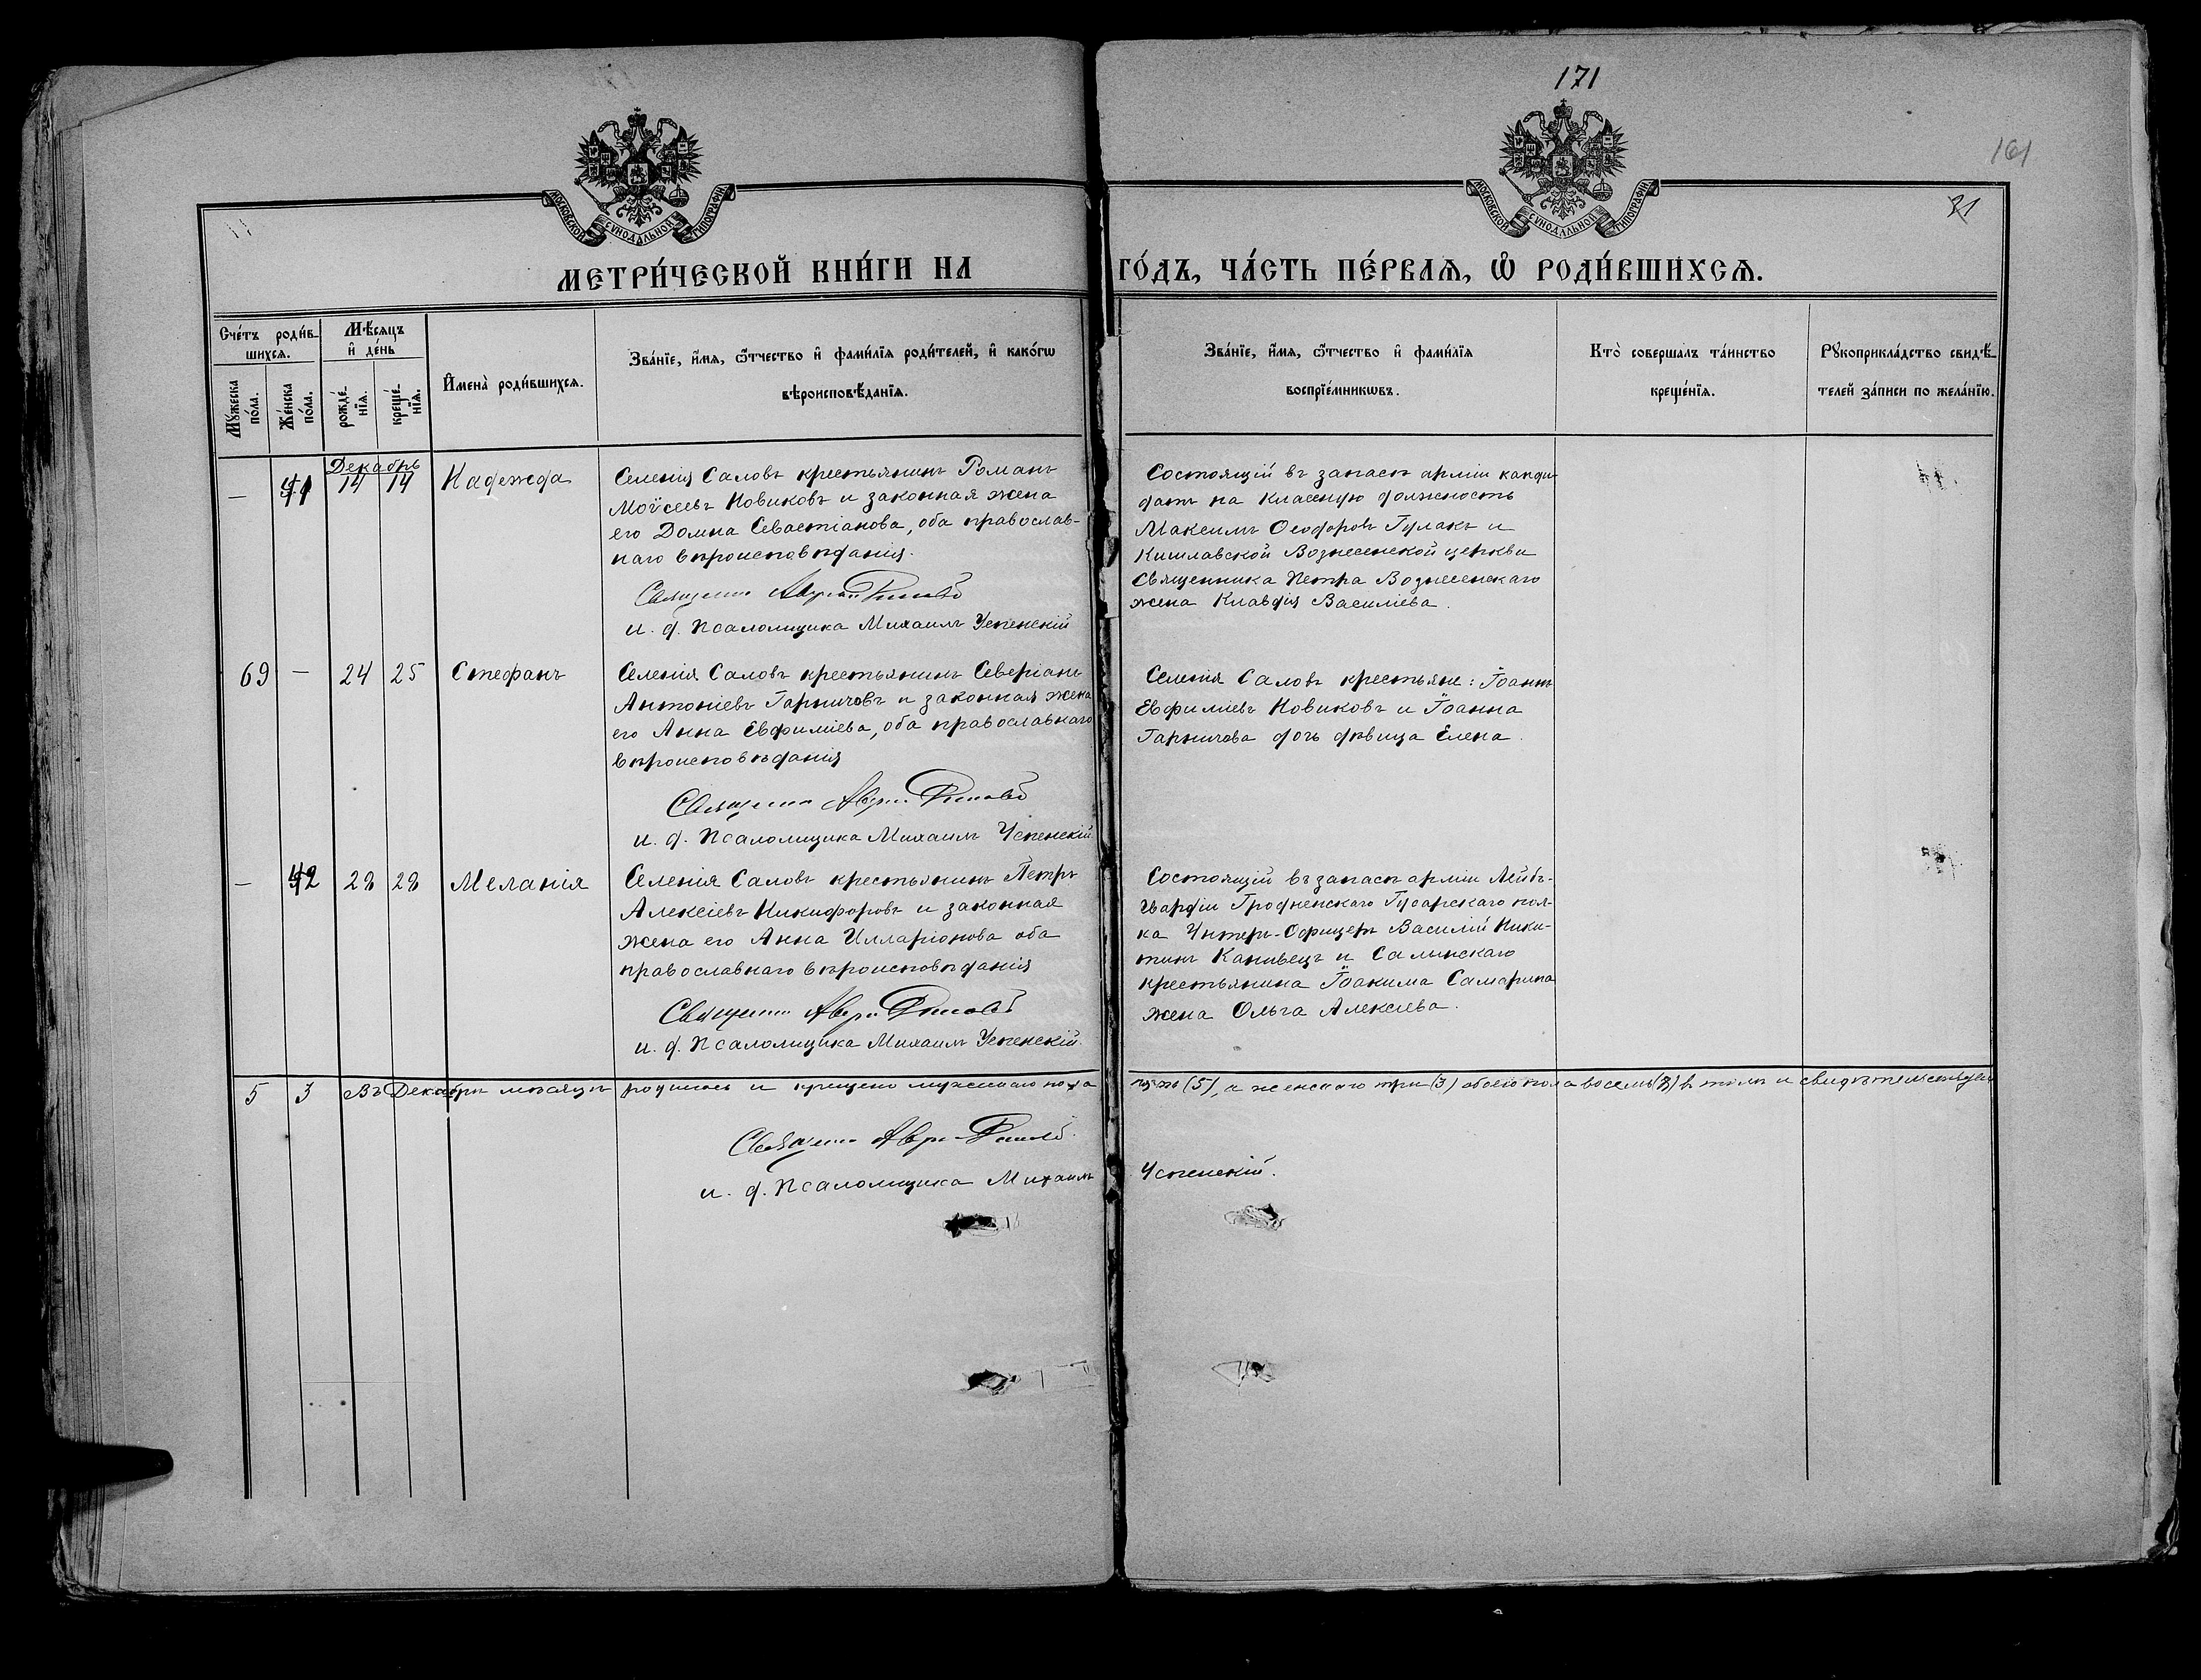 171
161
21
МОСКОВСКОЙ СУНОДАЛЬНОЙ ТИПОГРАФІИ
МОСКОВСКОЙ СУНОДАЛЬНОЙ ТИПОГРАФІИ
МЕТРИ́ЧЕСКОЙ КНИ́ГИ НА ГО́ДЪ, ЧА́СТЬ ПЕ́РВАѦ, Ѡ РОДИ́ВШИХСѦ.
Сче́тъ роди́вшихсѧ.
Мꙋ́жеска по́ла.
Же́нска по́ла.
Мѣ́сѧцъ и де́нь
рожде́нїѧ.
креще́нїѧ.
Имена̀ роди́вшихсѧ.
Зва́нїе, и́мѧ, ѻ́тчество и фами́лїѧ роди́телей, и како́гѡ
вѣроисповѣ́данїѧ.
Зва́нїе, и́мѧ, ѻ́тчество и фами́лїѧ
воспрїе́мникѡвъ.
Кто̀ соверша́лъ та́инство
креще́нїѧ.
Рꙋкоприкла́дство свидѣ́-
телей за́писи по жела́нїю.
Декабрь
— 41 14 14 Надежда
Селенія Саловъ крестьянинъ Романъ
Моѵсеевъ Новиковъ и законная жена
его Домна Севастіанова, оба православ-
наго вѣроисповѣданія.
и. д. Псаломщика Михаилъ Успенскій
Состоящій въ запасѣ арміи канди-
датъ на классную должность
Максимъ Ѳеодоровъ Гулакъ и
Кишлавской Вознесенской церкви
Священника Петра Вознесенскаго
жена Клавдія Василіева.
69 — 24 25 Стефанъ
Селенія Саловъ крестьянинъ Северіанъ
Антоніевъ Гарничовъ и законная жена
его Анна Евфиміева, оба православнаго
вѣроисповѣданія
и. д. Псаломщика Михаилъ Успенскій
Селенія Саловъ крестьяне: Іоаннъ
Евфиміевъ Новиковъ и Іоанна
Гарничова дочь дѣвица Елена.
— 42 28 28 Меланія
Селенія Саловъ крестьянинъ Петръ
Алексіевъ Никифоровъ и законная
жена его Анна Илларіонова оба
православнаго вѣроисповѣданія
и. д. Псаломщика Михаилъ Успенскій.
Состоящій въ запасѣ арміи Лейбъ-
Гвардіи Гродненскаго Гусарскаго пол-
ка Унтеръ-Офицеръ Василій Ники-
тинъ Канивецъ и Салынскаго
крестьянина Іоакима Самарина
жена Ольга Алексіева.
5 3 Въ Декабрѣ мѣсяцѣ родилось и крещено мужескаго пола пять (5), а женскаго три (3) обоего пола восемь (8) въ томъ и свидѣтельствуемъ
и. д. Псаломщика Михаилъ Успенскій.